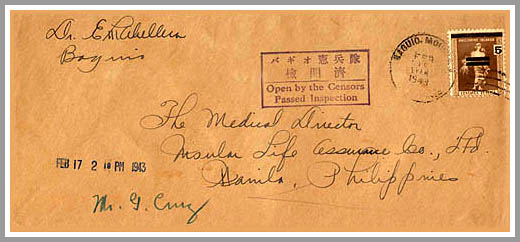 Dr. E. R. Abellera
Baguio
バギオ憲兵隊
檢閲濟
Open by the Censors
Passed Inspection
BAGUIO, MOU
FEB
1943
PHILIPPINE ISLANDS
5
The Medical Director
Insular Life Assurance Co., Ltd.
Manila, Philippines
FEB 17 2 PM 1943
Mr. G. Cruz